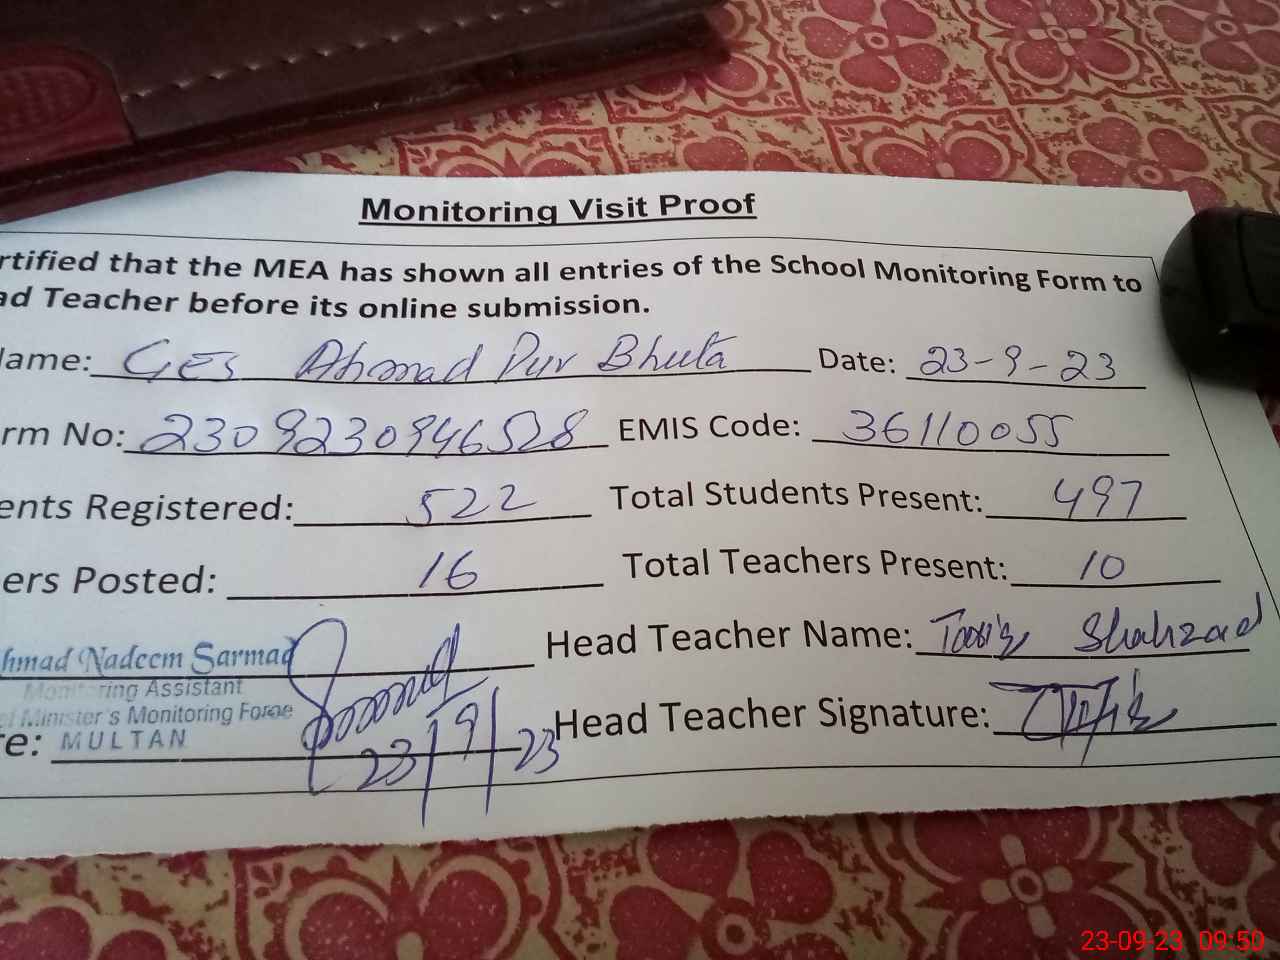 Monitoring Visit Proof
rtified that the MEA has shown all entries of the School Monitoring Form to
ad Teacher before its online submission.
lame: GES Ahmad Pur Bhuta Date: 23-9-23
rm No: 2309230946528 EMIS Code: 36110055
ents Registered: 522 Total Students Present: 497
ers Posted: 16 Total Teachers Present: 10
hmad Nadeem Sarmad Head Teacher Name: Tariq Shahzad
Monitoring Assistant
ef Minister's Monitoring Force
MULTAN
re: 23/9/23 Head Teacher Signature:
23-09-23 09:50